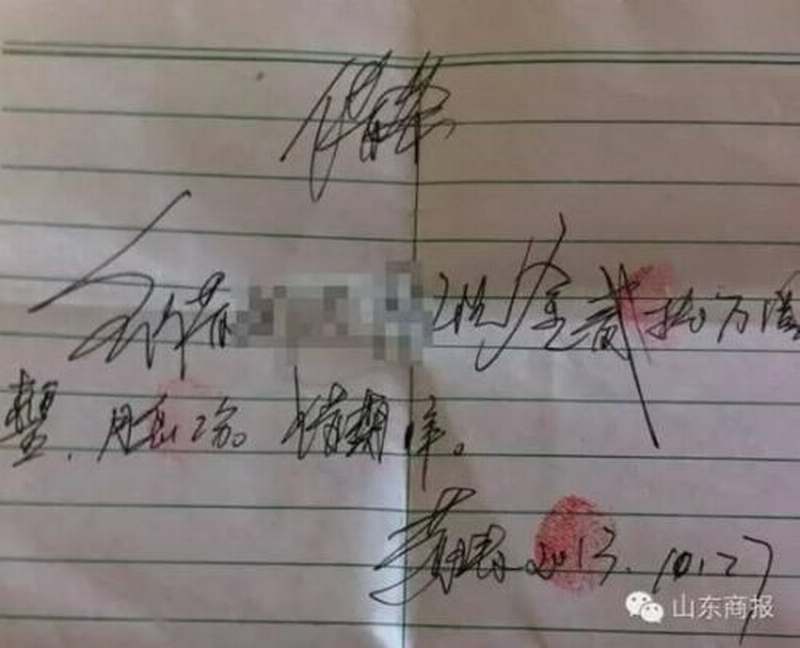 借条
今借 现金贰拾万圆
整，月息2分。借期1年。
2013.10.27
山东商报